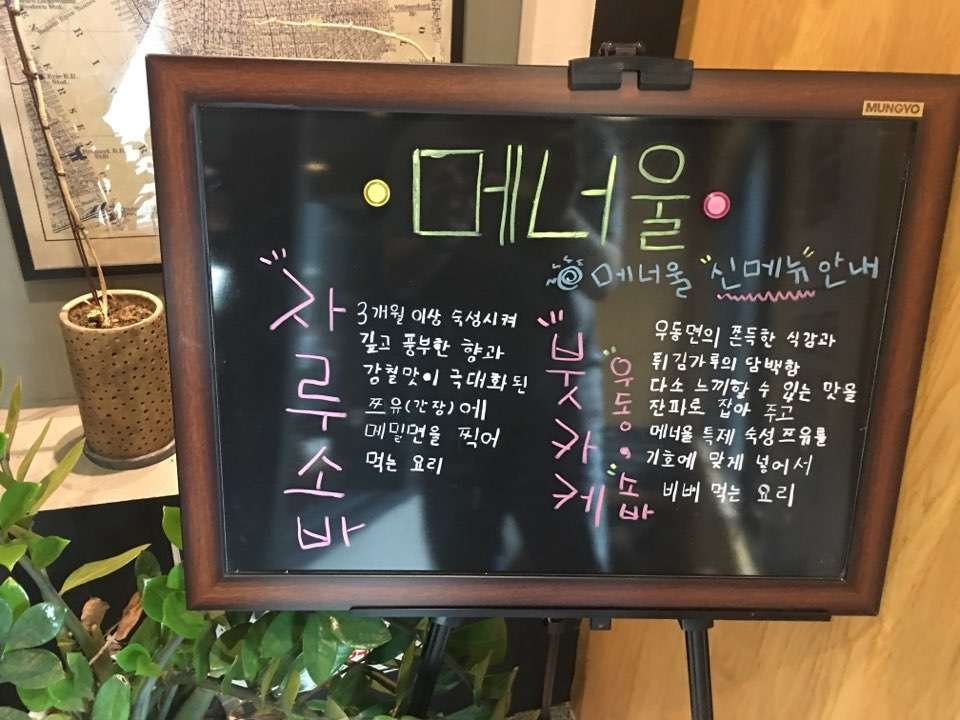 MUNGYO
메너울
메너울 "신메뉴" 안내
자루소바
3개월 이상 숙성시켜
깊고 풍부한 향과
감칠맛이 극대화된
쯔유(간장)에
메밀면을 찍어
먹는 요리
붓카케
우동·소바
우동면의 쫀득한 식감과
튀김가루의 담백함
다소 느끼할 수 있는 맛을
잔파로 잡아 주고
메너울 특제 숙성 쯔유를
기호에 맞게 넣어서
비벼 먹는 요리